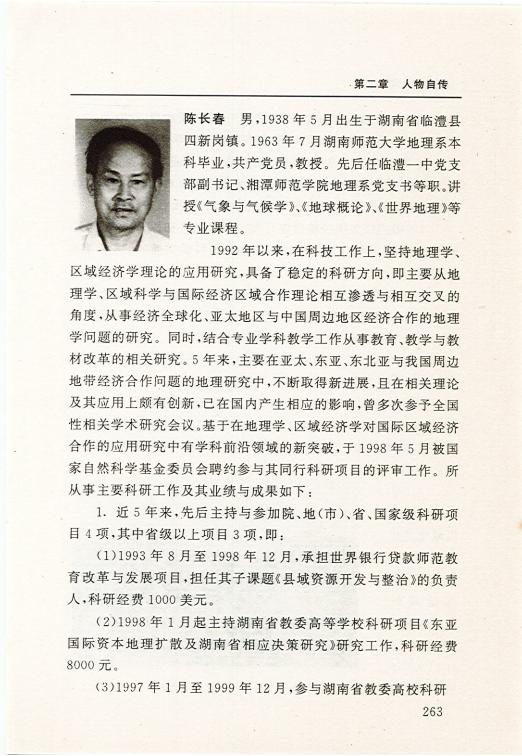 第二章 人物自传
陈长春 男,1938年5月出生于湖南省临澧县
四新岗镇。1963年7月湖南师范大学地理系本
科毕业,共产党员,教授。先后任临澧一中党支
部副书记、湘潭师范学院地理系党支书等职。讲
授《气象与气候学》、《地球概论》、《世界地理》等
专业课程。
1992年以来,在科技工作上,坚持地理学、
区域经济学理论的应用研究,具备了稳定的科研方向,即主要从地
理学、区域科学与国际经济区域合作理论相互渗透与相互交叉的
角度,从事经济全球化、亚太地区与中国周边地区经济合作的地理
学问题的研究。同时,结合专业学科教学工作从事教育、教学与教
材改革的相关研究。5年来,主要在亚太、东亚、东北亚与我国周边
地带经济合作问题的地理研究中,不断取得新进展,且在相关理论
及其应用上颇有创新,已在国内产生相应的影响,曾多次参予全国
性相关学术研究会议。基于在地理学、区域经济学对国际区域经济
合作的应用研究中有学科前沿领域的新突破,于1998年5月被国
家自然科学基金委员会聘约参与其同行科研项目的评审工作。所
从事主要科研工作及其业绩与成果如下:
1. 近5年来,先后主持与参加院、地(市)、省、国家级科研项
目4项,其中省级以上项目3项,即:
(1)1993年8月至1998年12月,承担世界银行贷款师范教
育改革与发展项目,担任其子课题《县域资源开发与整治》的负责
人,科研经费1000美元。
(2)1998年1月起主持湖南省教委高等学校科研项目《东亚
国际资本地理扩散及湖南省相应决策研究》研究工作,科研经费
8000元。
(3)1997年1月至1999年12月,参与湖南省教委高校科研
263